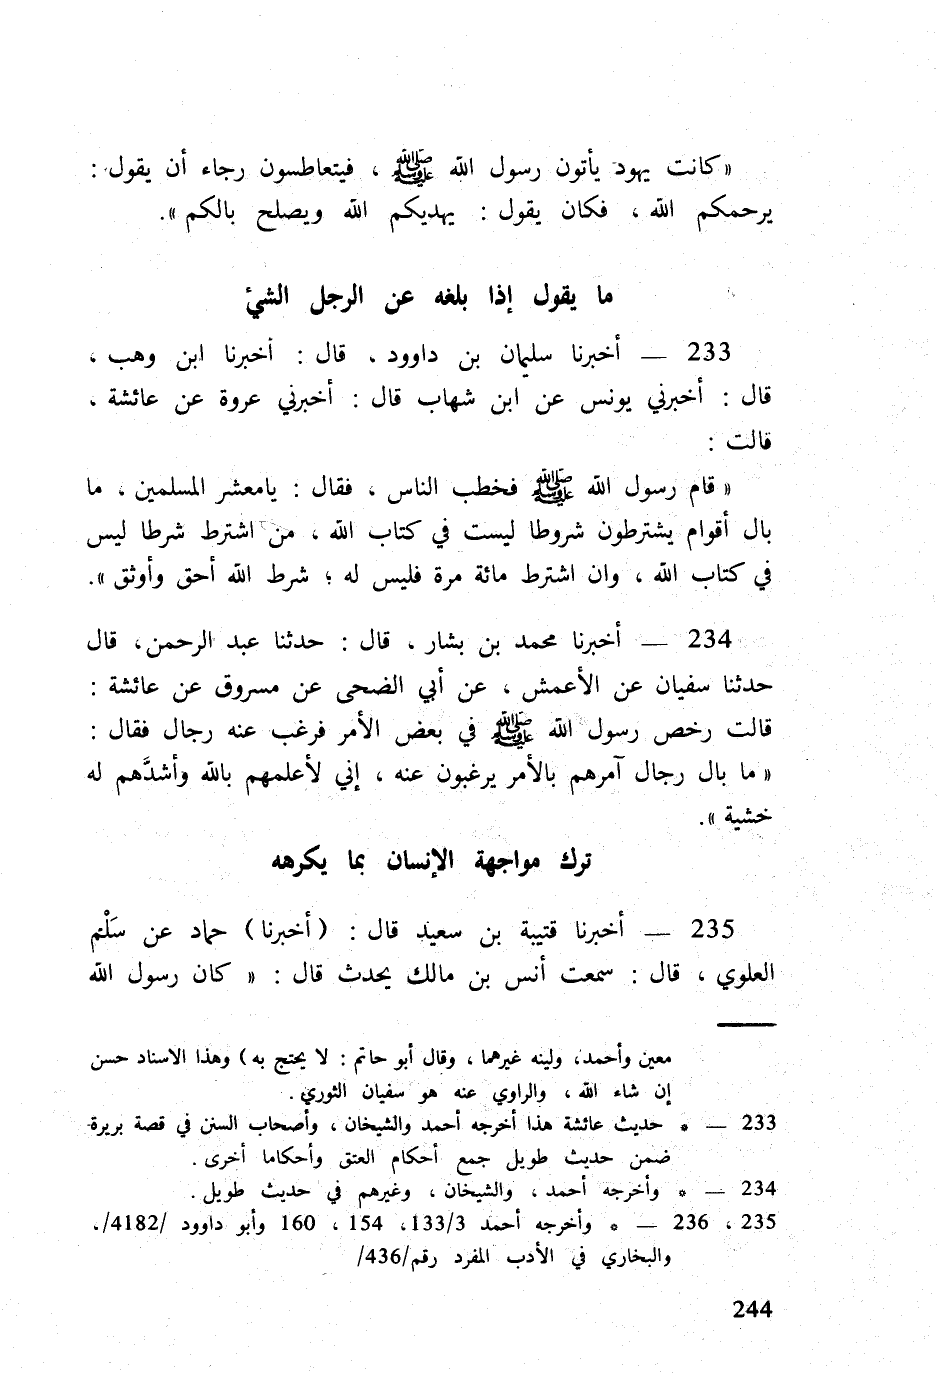 «كانت يهود يأتون رسول الله ﷺ ، فيتعاطسون رجاء أن يقول :
يرحمكم الله ، فكان يقول : يهديكم الله ويصلح بالكم ».
ما يقول إذا بلغه عن الرجل الشيء
233 — أخبرنا سليمان بن داوود . قال : أخبرنا ابن وهب ،
قال : أخبرني يونس عن ابن شهاب قال : أخبرني عروة عن عائشة .
قالت :
« قام رسول الله ﷺ فخطب الناس ، فقال : يامعشر المسلمين ، ما
بال أقوام يشترطون شروطا ليست في كتاب الله ، من اشترط شرطا ليس
في كتاب الله ، وان اشترط مائة مرة فليس له ؛ شرط الله أحق وأوثق ».
234 — أخبرنا محمد بن بشار . قال : حدثنا عبد الرحمن، قال
حدثنا سفيان عن الأعمش ، عن أبي الضحى عن مسروق عن عائشة :
قالت رخص رسول الله ﷺ في بعض الأمر فرغب عنه رجال فقال :
« ما بال رجال آمرهم بالأمر يرغبون عنه ، إني لأعلمهم بالله وأشدَّهم له
خشية ».
ترك مواجهة الإنسان بما يكرهه
235 — أخبرنا قتيبة بن سعيد قال : (أخبرنا) حماد عن سَلْم
العلوي ، قال : سمعت أنس بن مالك يحدث قال : « كان رسول الله
معين وأحمد، ولينه غيرهما ، وقال أبو حاتم : لا يحتج به) وهذا الاسناد حسن
إن شاء الله ، والراوي عنه هو سفيان الثوري .
233 — * حديث عائشة هذا أخرجه أحمد والشيخان ، وأصحاب السنن في قصة بريرة
ضمن حديث طويل جمع أحكام العتق وأحكاما أخرى .
234 — * وأخرجه أحمد ، والشيخان ، وغيرهم في حديث طويل .
235 ، 236 — * وأخرجه أحمد 133/3، 154 ، 160 وأبو داوود /4182/.
والبخاري في الأدب المفرد رقم/436/
244